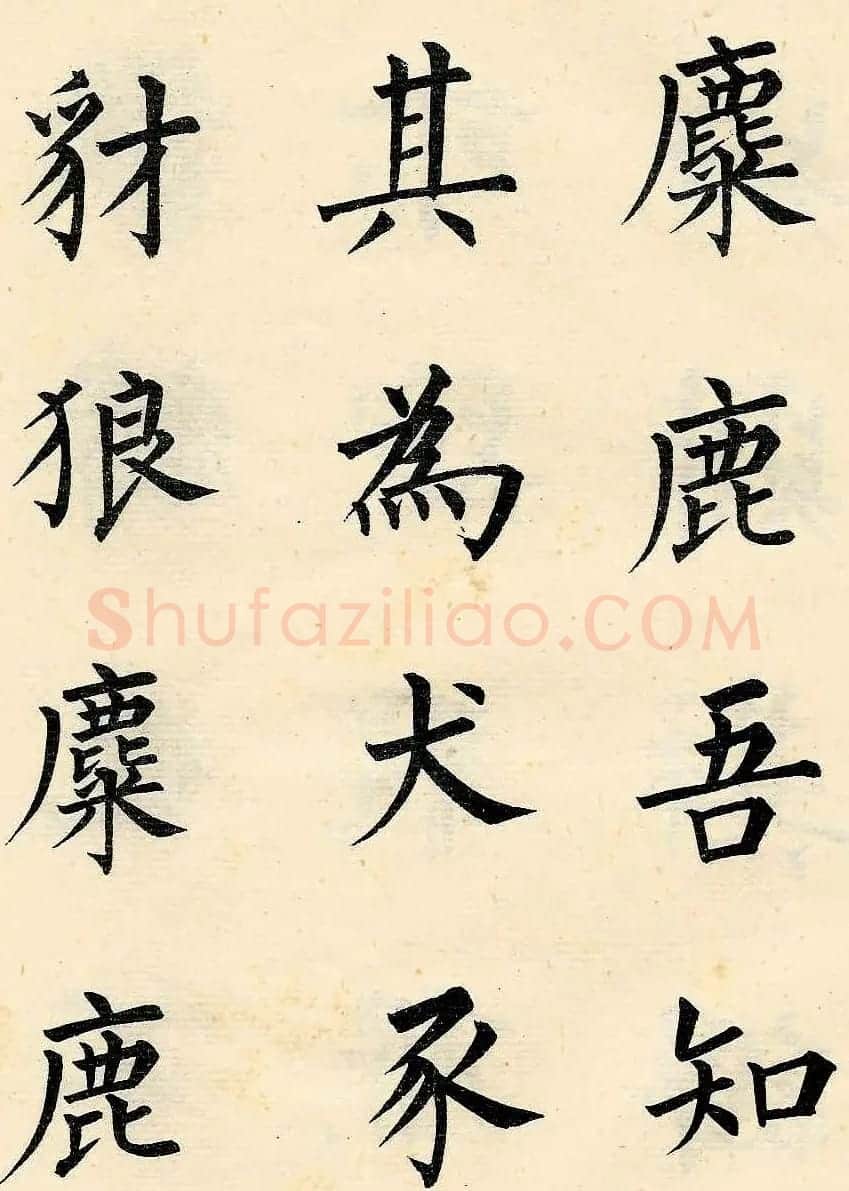 麋鹿吾知
其為犬豕
豺狼麋鹿
Shufaziliao.COM